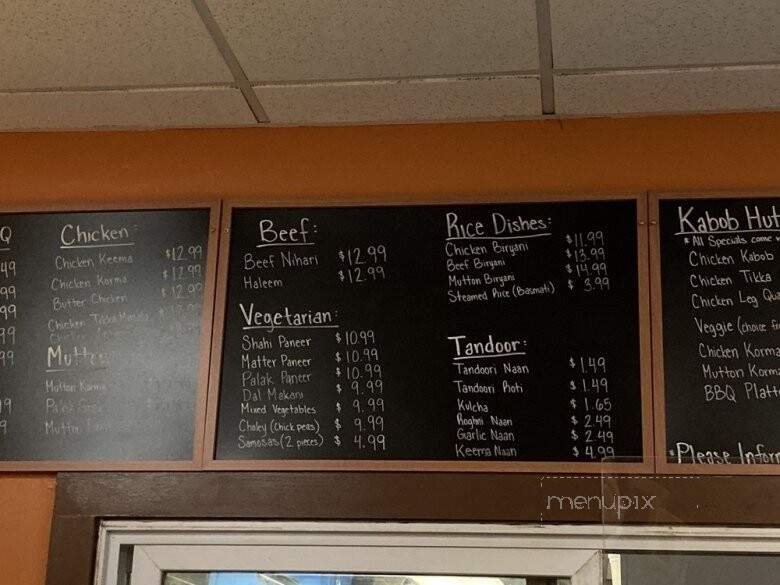 Q
49
99
99
99
99
19
9
Chicken:
Chicken Keema $12.99
Chicken Korma $12.99
Butter Chicken $12.99
Chicken Tikka Masala
Mutton
Mutton Korma
Mutton
Beef:
Beef Nihari $12.99
Haleem $12.99
Vegetarian:
Shahi Paneer $10.99
Matter Paneer $10.99
Palak Paneer $10.99
Dal Makani $9.99
Mixed Vegetables $9.99
Choley (Chick peas) $9.99
Samosas (2 pieces) $4.99
Rice Dishes:
Chicken Biryani $11.99
Beef Biryani $13.99
Mutton Biryani $14.99
Steamed Rice (Basmati) $3.99
Tandoor:
Tandoori Naan $1.49
Tandoori Roti $1.49
Kulcha $1.65
Roghni Naan $2.49
Garlic Naan $2.49
Keema Naan $4.99
Kabob Hut
* All Specials come
Chicken Kabob
Chicken Tikka
Chicken Leg Qua
Veggie (choice
Chicken Korma
Mutton Korma
BBQ Platt
*Please Inform
menupix